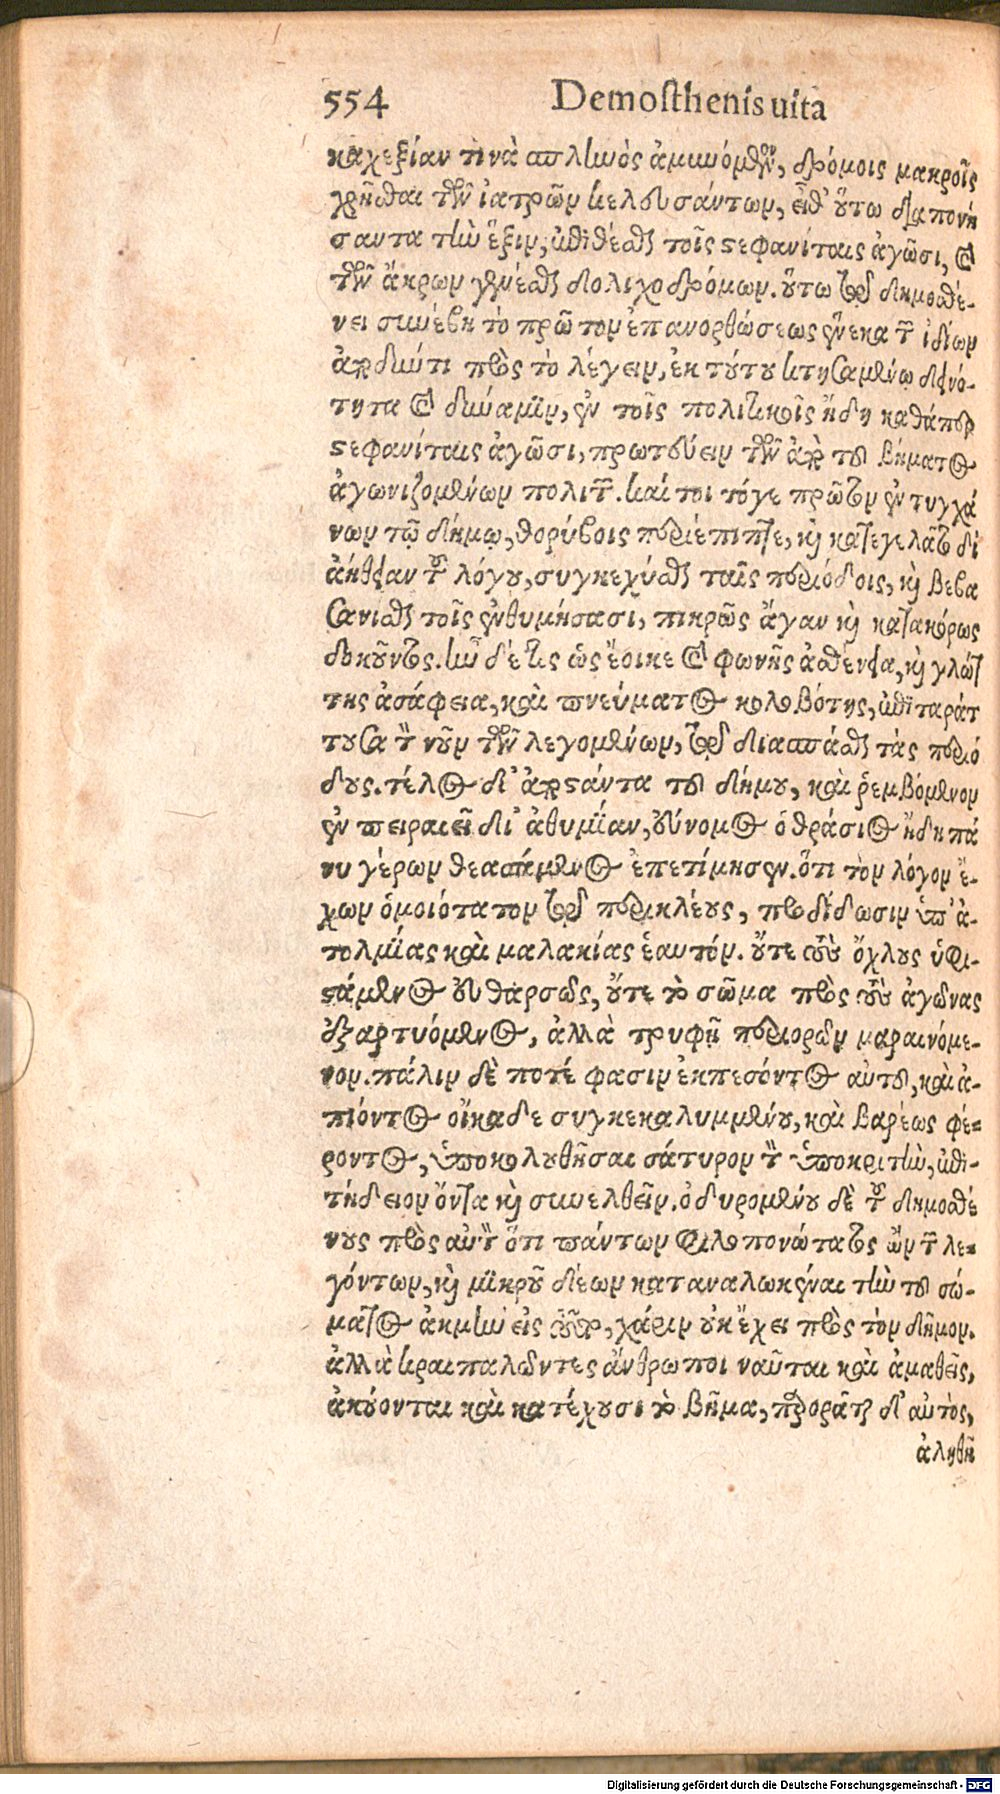 554 Demosthenis uita
καχεξίαν τινὰ σπλίωὸς ἀμυνόμθρον, δρόμοις μακροῖς
χρῆσθαι τῶν ἰατρῶν κελουσάντων, εἶθ' ὅτω διαπονή
σαντα τὴν ἕξιν, ἐπιθέσθαι τοῖς στεφανίταις ἀγῶσι, καὶ
τῶν ἄκρων γενέσθαι δολιχοδρόμων. ὅτω τῷ δημοσθέ-
νει συνέβη τὸ πρῶτον ἐπανορθώσεως ἕνεκα τῶν ἰδίων
ἀποδιώτι πρὸς τὸ λέγειν, ἐκ τούτου κτησαμένῳ δεινό-
τητα καὶ δύναμιν, ἐν τοῖς πολιτικοῖς ἤδη καθάπερ
στεφανίταις ἀγῶσι, πρωτεύειν τῶν ἀπὸ τοῦ βήματος
ἀγωνιζομένων πολιτῶν. καί τοι τόγε πρῶτον ἐντυγχά
νων τῷ δήμῳ, θορύβοις περιέπιπτε, καὶ κατεγελᾶτο δι
ἀήθειαν τοῦ λόγου, συγκεχύσθαι ταῖς περιόδοις, καὶ βεβα
σανίσθαι τοῖς ἐνθυμήσασι, πικρῶς ἄγαν καὶ κατακόρως
δοκοῦντος. ἦν δέ τις ὡς ἔοικε καὶ φωνῆς ἀσθένεια, καὶ γλώτ
της ἀσάφεια, καὶ πνεύματος κολοβότης, ἐπιταράτ
τουσα τὸν νοῦν τῶν λεγομένων, τῷ διασπᾶσθαι τὰς περιό
δους. τέλος δ' ἀποστάντα τοῦ δήμου, καὶ ῥεμβόμενον
ἐν πειραιεῖ δι' ἀθυμίαν, εὔνομος ὁ θράσιος ἤδη πά
νυ γέρων θεασάμενος ἐπετίμησεν. ὅτι τὸν λόγον ἔ-
χων ὁμοιότατον τῷ περικλέους, προδίδωσιν ὑπ' ἀ-
τολμίας καὶ μαλακίας ἑαυτόν. οὔτε τοὺς ὄχλους ὑφι-
στάμενος εὐθαρσῶς, οὔτε τὸ σῶμα πρὸς τοὺς ἀγῶνας
ἐξαρτυόμενος, ἀλλὰ τρυφῇ περιορῶν μαραινόμε-
νον. πάλιν δὲ ποτέ φασιν ἐκπεσόντος αὐτοῦ, καὶ ἀ-
πιόντος οἴκαδε συγκεκαλυμμένου, καὶ βαρέως φέ-
ροντος, ὑπακολουθῆσαι σάτυρον τὸν ὑποκριτὴν, ἐπι-
τήδειον ὄντα καὶ συνελθεῖν. ὀδυρομένου δὲ τοῦ δημοσθέ
νους πρὸς αὐτὸν ὅτι πάντων φιλοπονώτατος ὢν τῶν λε-
γόντων, καὶ μικροῦ δέων καταναλωκέναι τὴν τοῦ σώ-
ματος ἀκμὴν εἰς τοῦτο, χάριν οὐκ ἔχει πρὸς τὸν δῆμον.
ἀλλὰ κραιπαλῶντες ἄνθρωποι ναῦται καὶ ἀμαθεῖς,
ἀκούονται καὶ κατέχουσι τὸ βῆμα, παρορᾶται δ' αὐτὸς,
ἀληθῆ
Digitalisierung gefördert durch die Deutsche Forschungsgemeinschaft - DFG